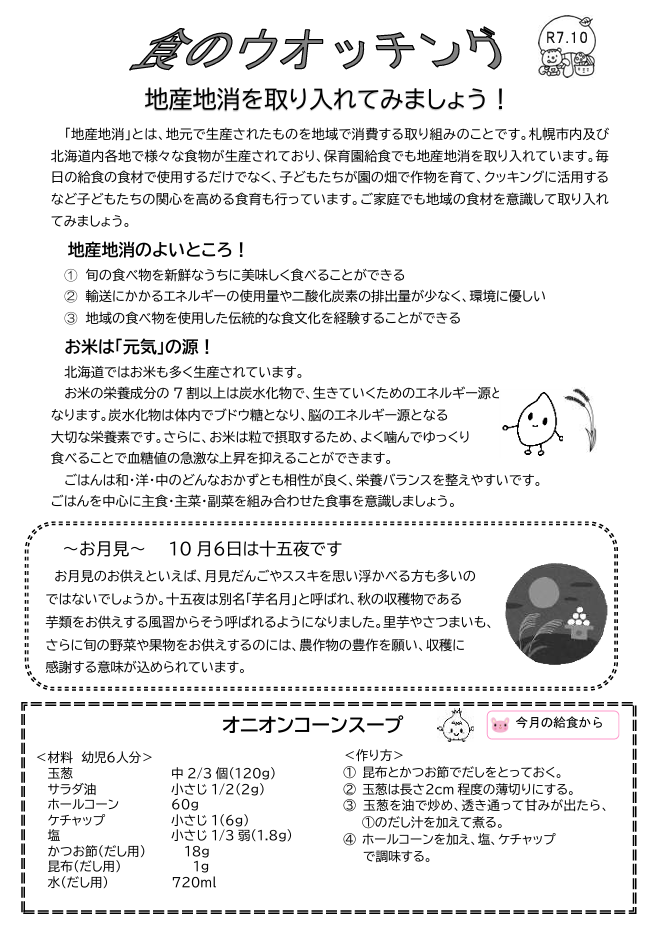 食のウオッチング
R7.10
地産地消を取り入れてみましょう！
「地産地消」とは、地元で生産されたものを地域で消費する取り組みのことです。札幌市内及び
北海道内各地で様々な食物が生産されており、保育園給食でも地産地消を取り入れています。毎
日の給食の食材で使用するだけでなく、子どもたちが園の畑で作物を育て、クッキングに活用する
など子どもたちの関心を高める食育も行っています。ご家庭でも地域の食材を意識して取り入れ
てみましょう。
地産地消のよいところ！
① 旬の食べ物を新鮮なうちに美味しく食べることができる
② 輸送にかかるエネルギーの使用量や二酸化炭素の排出量が少なく、環境に優しい
③ 地域の食べ物を使用した伝統的な食文化を経験することができる
お米は「元気」の源！
北海道ではお米も多く生産されています。
お米の栄養成分の７割以上は炭水化物で、生きていくためのエネルギー源と
なります。炭水化物は体内でブドウ糖となり、脳のエネルギー源となる
大切な栄養素です。さらに、お米は粒で摂取するため、よく噛んでゆっくり
食べることで血糖値の急激な上昇を抑えることができます。
ごはんは和・洋・中のどんなおかずとも相性が良く、栄養バランスを整えやすいです。
ごはんを中心に主食・主菜・副菜を組み合わせた食事を意識しましょう。
～お月見～ 10月6日は十五夜です
お月見のお供えといえば、月見だんごやススキを思い浮かべる方も多いの
ではないでしょうか。十五夜は別名「芋名月」と呼ばれ、秋の収穫物である
芋類をお供えする風習からそう呼ばれるようになりました。里芋やさつまいも、
さらに旬の野菜や果物をお供えするのには、農作物の豊作を願い、収穫に
感謝する意味が込められています。
オニオンコーンスープ
今月の給食から
＜材料 幼児6人分＞
玉葱 中2/3個(120g)
サラダ油 小さじ1/2(2g)
ホールコーン 60g
ケチャップ 小さじ1(6g)
塩 小さじ1/3弱(1.8g)
かつお節(だし用) 18g
昆布(だし用) 1g
水(だし用) 720ml
＜作り方＞
① 昆布とかつお節でだしをとっておく。
② 玉葱は長さ2cm程度の薄切りにする。
③ 玉葱を油で炒め、透き通って甘みが出たら、
①のだし汁を加えて煮る。
④ ホールコーンを加え、塩、ケチャップ
で調味する。